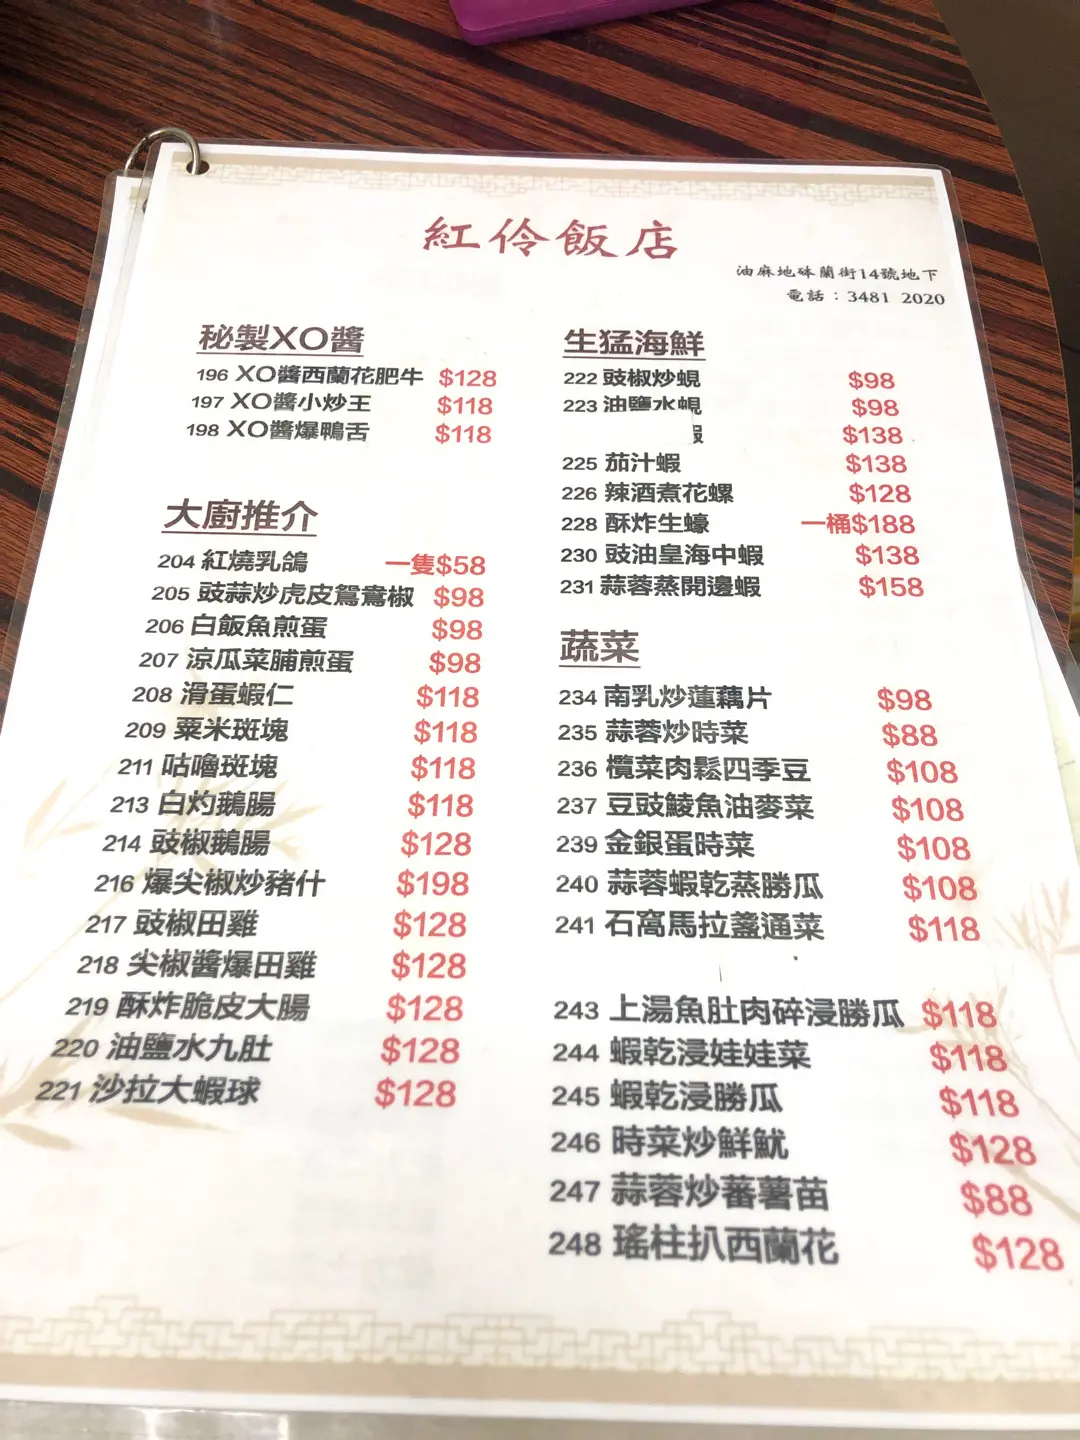 紅伶飯店
油麻地砵蘭街14號地下
電話：3481 2020
秘製XO醬
196 XO醬西蘭花肥牛 $128
197 XO醬小炒王 $118
198 XO醬爆鴨舌 $118
大廚推介
204 紅燒乳鴿 一隻$58
205 豉蒜炒虎皮鴛鴦椒 $98
206 白飯魚煎蛋 $98
207 涼瓜菜脯煎蛋 $98
208 滑蛋蝦仁 $118
209 粟米斑塊 $118
211 咕嚕斑塊 $118
213 白灼鵝腸 $118
214 豉椒鵝腸 $128
216 爆尖椒炒豬什 $198
217 豉椒田雞 $128
218 尖椒醬爆田雞 $128
219 酥炸脆皮大腸 $128
220 油鹽水九肚 $128
221 沙拉大蝦球 $128
生猛海鮮
222 豉椒炒蜆 $98
223 油鹽水蜆 $98
$138
225 茄汁蝦 $138
226 辣酒煮花螺 $128
228 酥炸生蠔 一桶$188
230 豉油皇海中蝦 $138
231 蒜蓉蒸開邊蝦 $158
蔬菜
234 南乳炒蓮藕片 $98
235 蒜蓉炒時菜 $88
236 欖菜肉鬆四季豆 $108
237 豆豉鯪魚油麥菜 $108
239 金銀蛋時菜 $108
240 蒜蓉蝦乾蒸勝瓜 $108
241 石窩馬拉盞通菜 $118
243 上湯魚肚肉碎浸勝瓜 $118
244 蝦乾浸娃娃菜 $118
245 蝦乾浸勝瓜 $118
246 時菜炒鮮魷 $128
247 蒜蓉炒蕃薯苗 $88
248 瑤柱扒西蘭花 $128